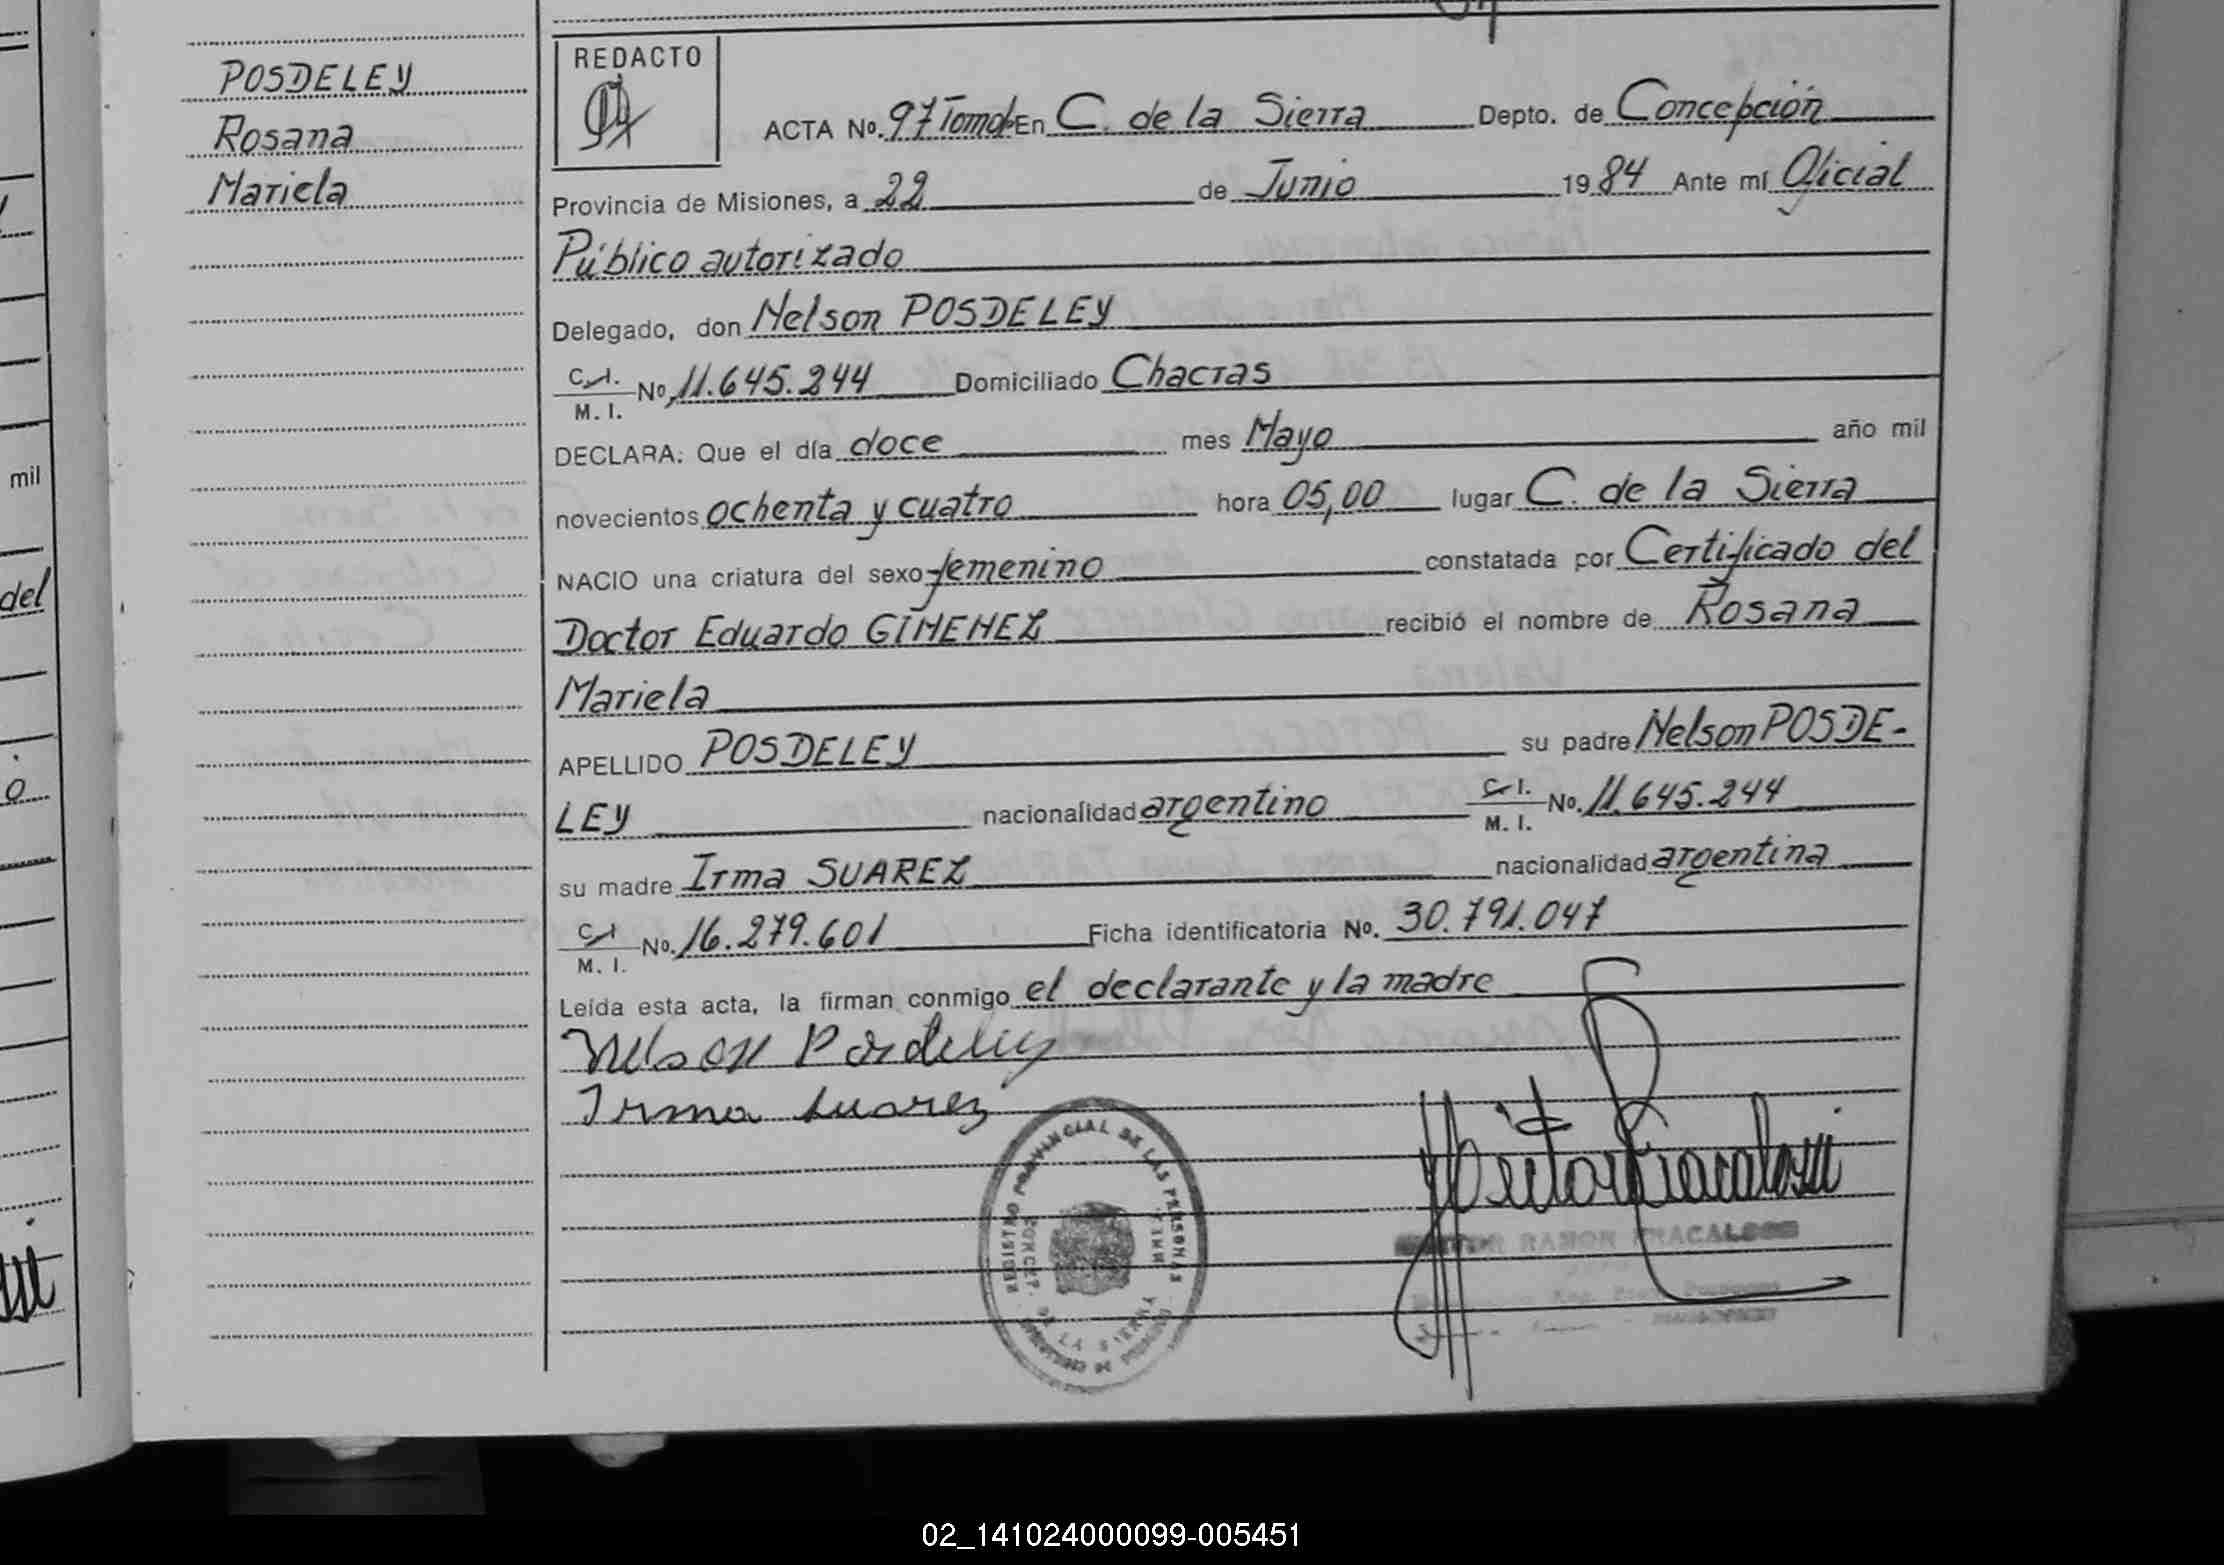 POSDELEY
Rosana
Mariela
REDACTO
ACTA No. 97 Tomo I En C. de la Sierra Depto. de Concepción
Provincia de Misiones, a 22 de Junio 1984 Ante mí Oficial
Público autorizado
Delegado, don Nelson POSDELEY
C.I. M. I. No. 11.645.244 Domiciliado Chacras
DECLARA: Que el día doce mes Mayo año mil
novecientos ochenta y cuatro hora 05,00 lugar C. de la Sierra
NACIO una criatura del sexo femenino constatada por Certificado del
Doctor Eduardo GIMENEZ recibió el nombre de Rosana
Mariela
APELLIDO POSDELEY su padre Nelson POSDE-
LEY nacionalidad argentino C.I. M. I. No. 11.645.244
su madre Irma SUAREZ nacionalidad argentina
C.I. M. I. No. 16.279.601 Ficha identificatoria No. 30.791.047
Leída esta acta, la firman conmigo el declarante y la madre
Nelson Posdeley
Irma Suarez
REGISTRO PROVINCIAL DE LAS PERSONAS
DE LA SIERRA
RAMON
mil
del
o
02_141024000099-005451